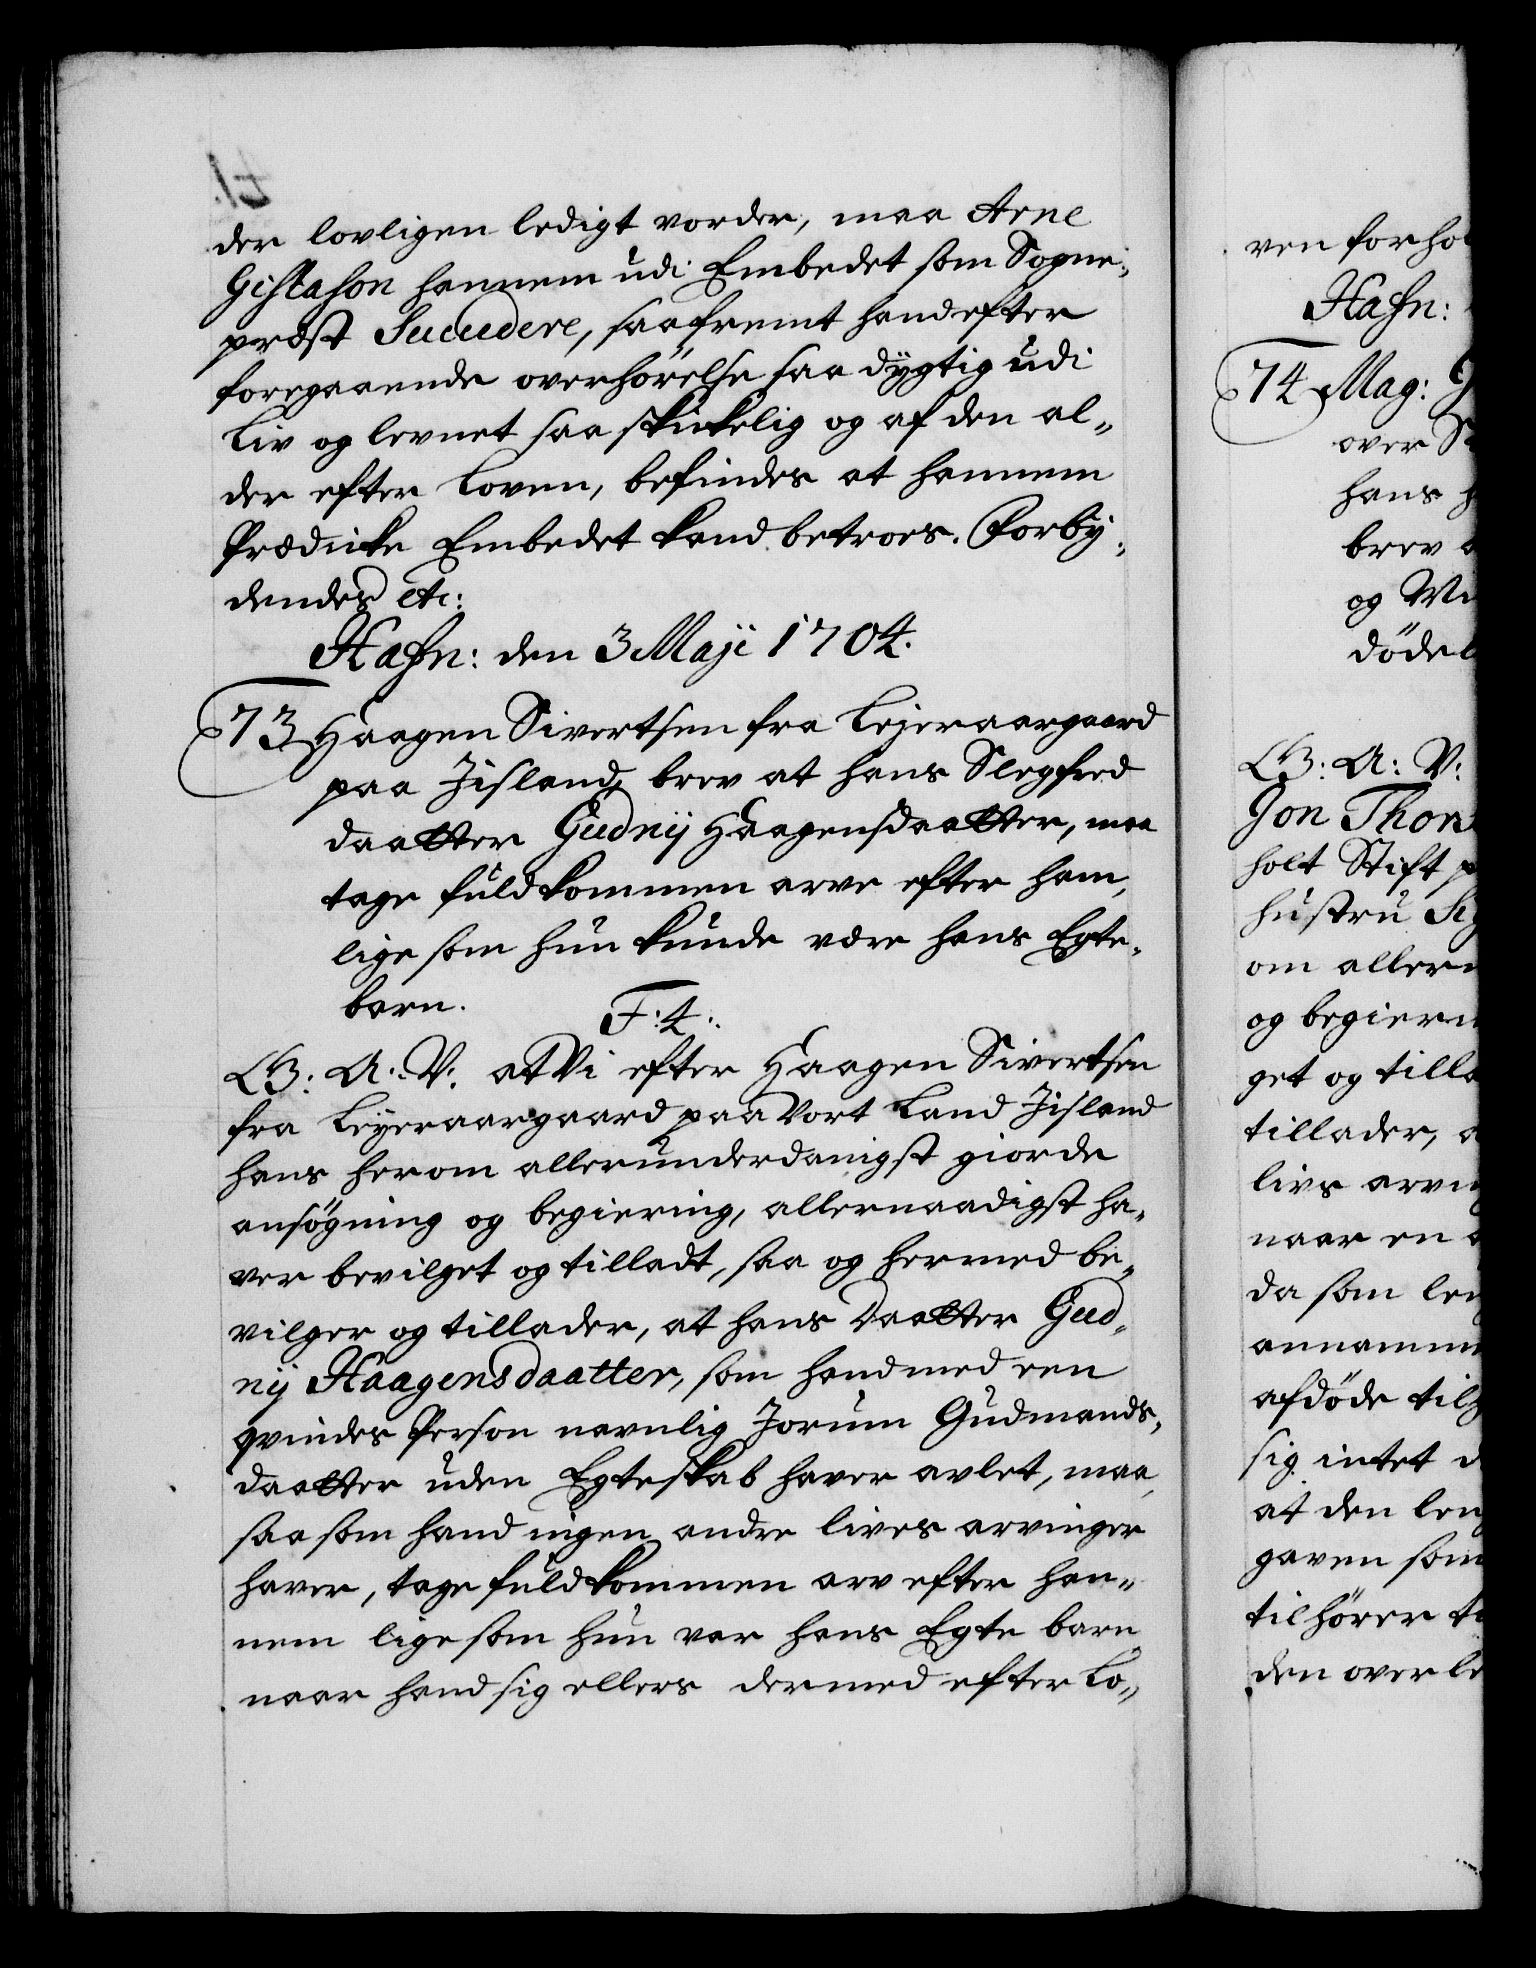 der lovligen ledigt vorder, maa Arne
Gislason hannem udi Embedet som Sogne-
præst Succedere, saafremt hand efter
foregaaende overhörelse saa dygtig udi
Liv og levnet saa skikkelig og af den al-
der efter Loven, befindes at hannem
Prædicke Embedet kand betroes. Forby-
dendes etc:
Hafn: den 3 Maji 1704.
73 Haagen Sivertsen fra Lejeraargaard
paa Jisland, brev at hans Slegfred
daatter Gudnij Haagensdaatter, maa
tage fuldkommen arve efter ham,
lige som hun kunde være hans Egte-
barn.
F: 4:
G: A: V: at Vi efter Haagen Sivertsen
fra Leyeraargaard paa Vort Land Jisland
hans herom allerunderdanigst giorde
ansögning og begiering, allernaadigst ha-
ver bevilget og tilladt, saa og hermed be-
vilger og tillader, at hans Daatter Gud-
nij Haagensdaatter, som hand med een
qvindes Person navnlig Jorum Gudmands-
daatter uden Egteskab haver avlet, maa,
saa som hand ingen andre lives arvinger
haver, tage fuldkommen arv efter han-
nem lige som hun var hans Egte barn
naar hand sig ellers dermed efter Lo-
ven forhol
Hafn:
74 Mag:
over
hans
brev
og
G: A: V:
Jon Thor
holt Stift
hustru
om aller
og begier
get og till
tillader,
livs arv
naar en
da som
annamm
afdöde
sig intet
at den
gaven som
tilhörer
den over